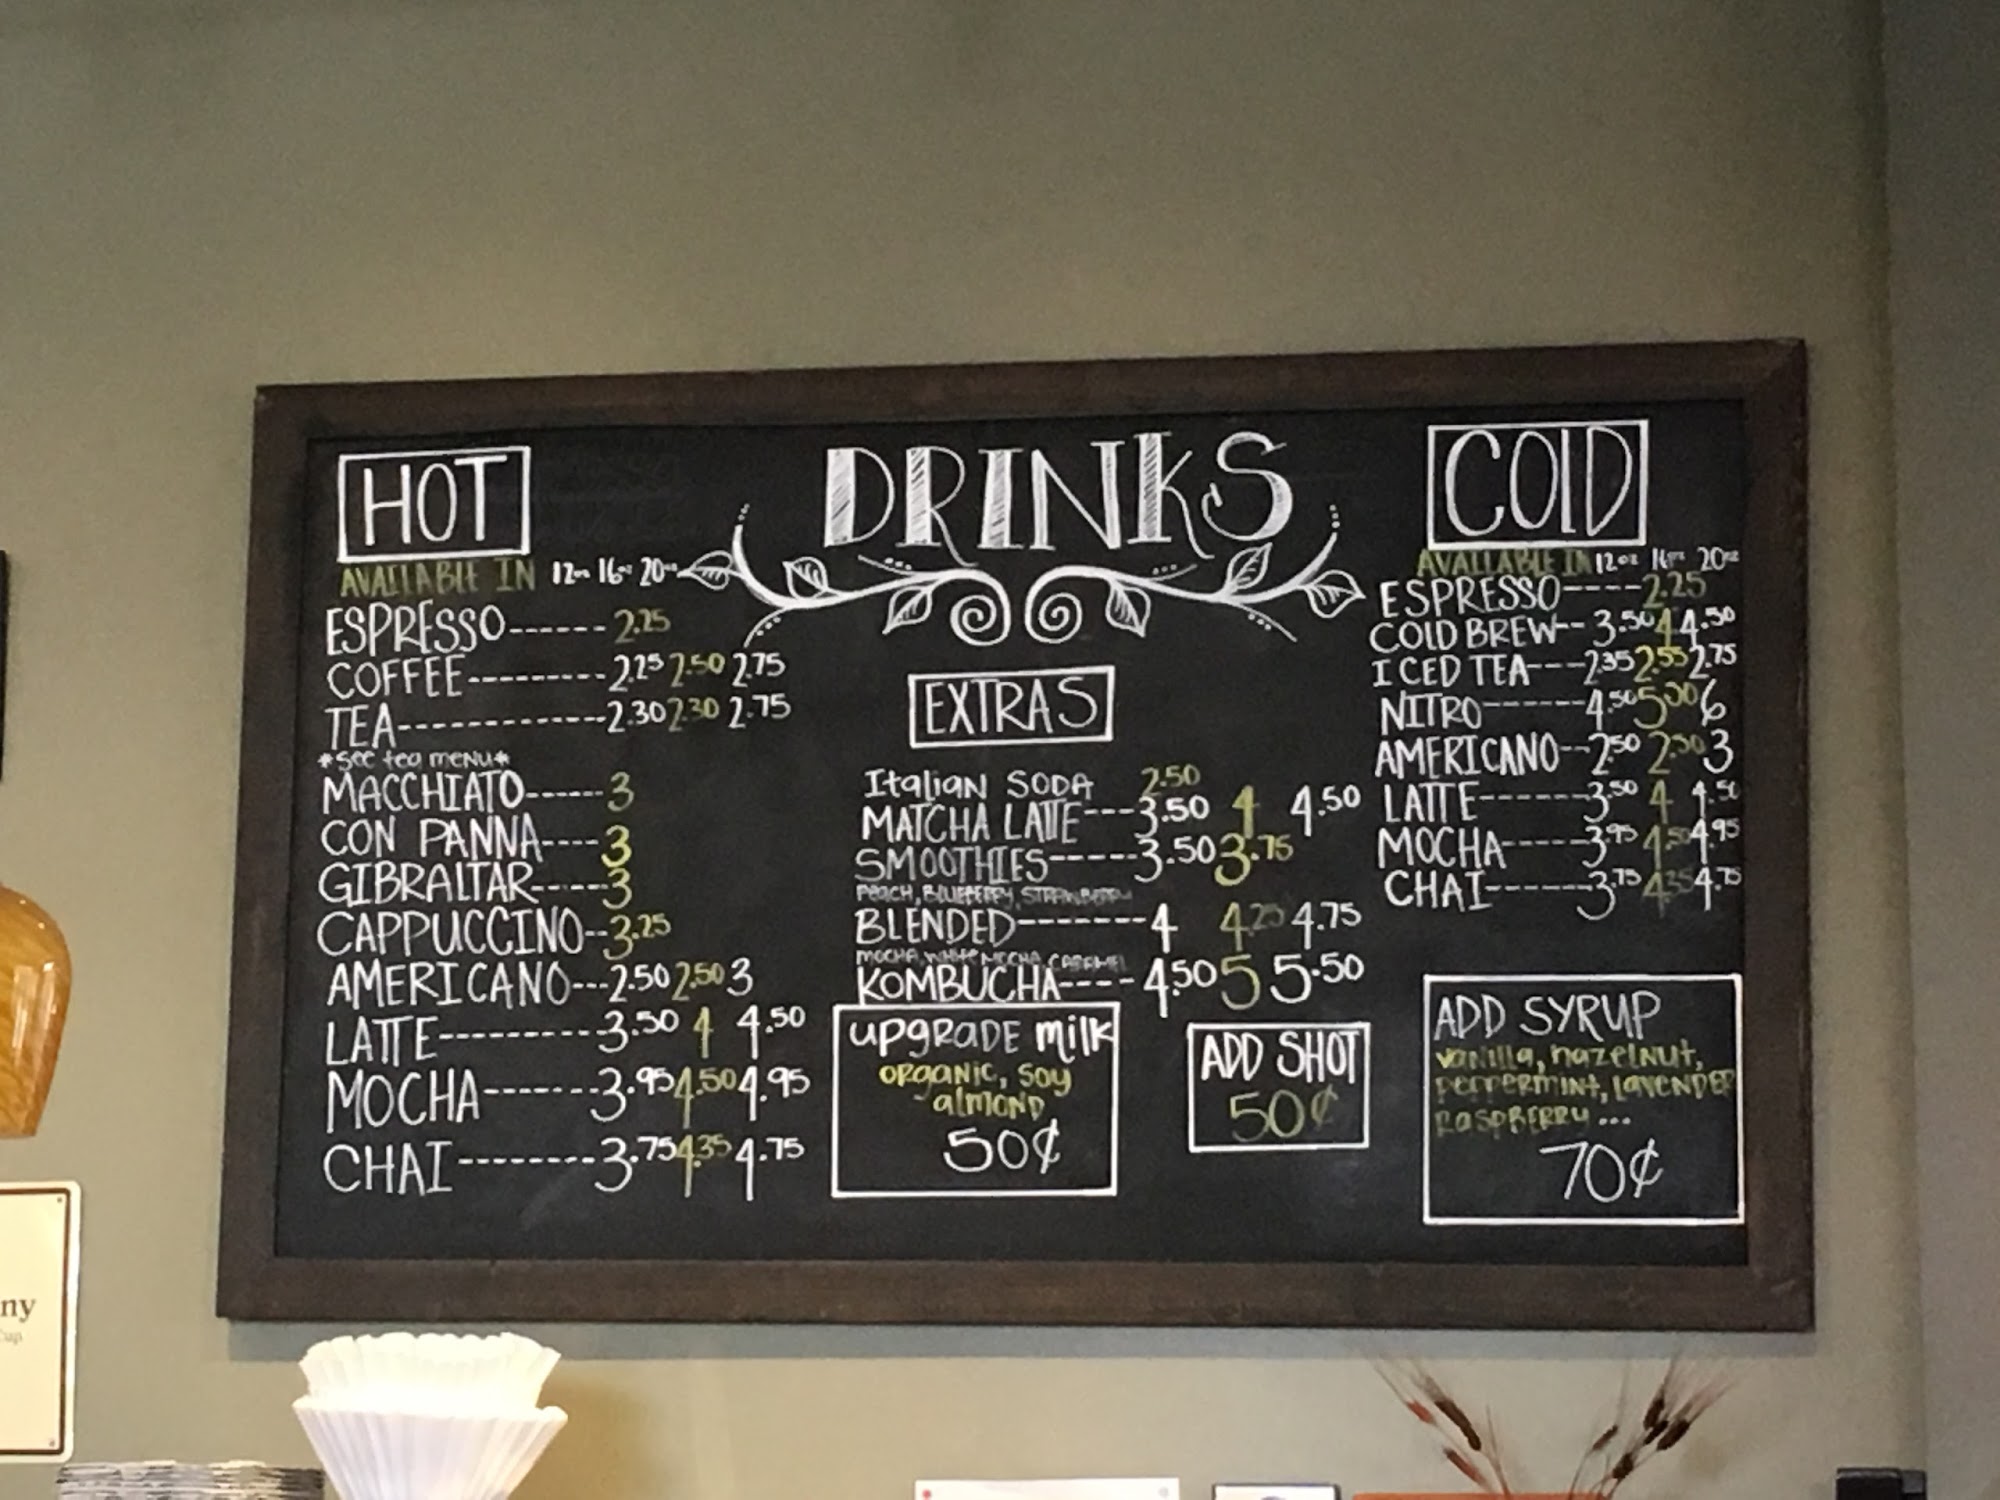 DRINKS
HOT
AVAILABLE IN 12oz 16oz 20oz
ESPRESSO------ 2.25
COFFEE--------- 2.25 2.50 2.75
TEA------------ 2.30 2.30 2.75
*see tea menu*
MACCHIATO------ 3
CON PANNA---- 3
GIBRALTAR----- 3
CAPPUCCINO-- 3.25
AMERICANO--- 2.50 2.50 3
LATTE---------- 3.50 4 4.50
MOCHA------- 3.95 4.50 4.95
CHAI -------- 3.75 4.35 4.75
EXTRAS
Italian SODA 2.50
MATCHA LATTE--- 3.50 4 4.50
SMOOTHIES----- 3.50 3.75
PEACH, BLUEBERRY, STRAWBERRY
BLENDED------- 4 4.25 4.75
MOCHA, WHITE MOCHA, CARAMEL
KOMBUCHA---- 4.50 5 5.50
upgrade milk
organic, soy
almond
50¢
ADD SHOT
50¢
COLD
AVAILABLE IN 12oz 16oz 20oz
ESPRESSO---- 2.25
COLD BREW-- 3.50 4 4.50
ICED TEA--- 2.35 2.55 2.75
NITRO------ 4.50 5.00 6
AMERICANO-- 2.50 2.50 3
LATTE------ 3.50 4 4.50
MOCHA----- 3.95 4.50 4.95
CHAI------ 3.75 4.35 4.75
ADD SYRUP
vanilla, hazelnut,
PEPPERMINT, LAVENDER
RASPBERRY ...
70¢
ny
Cup